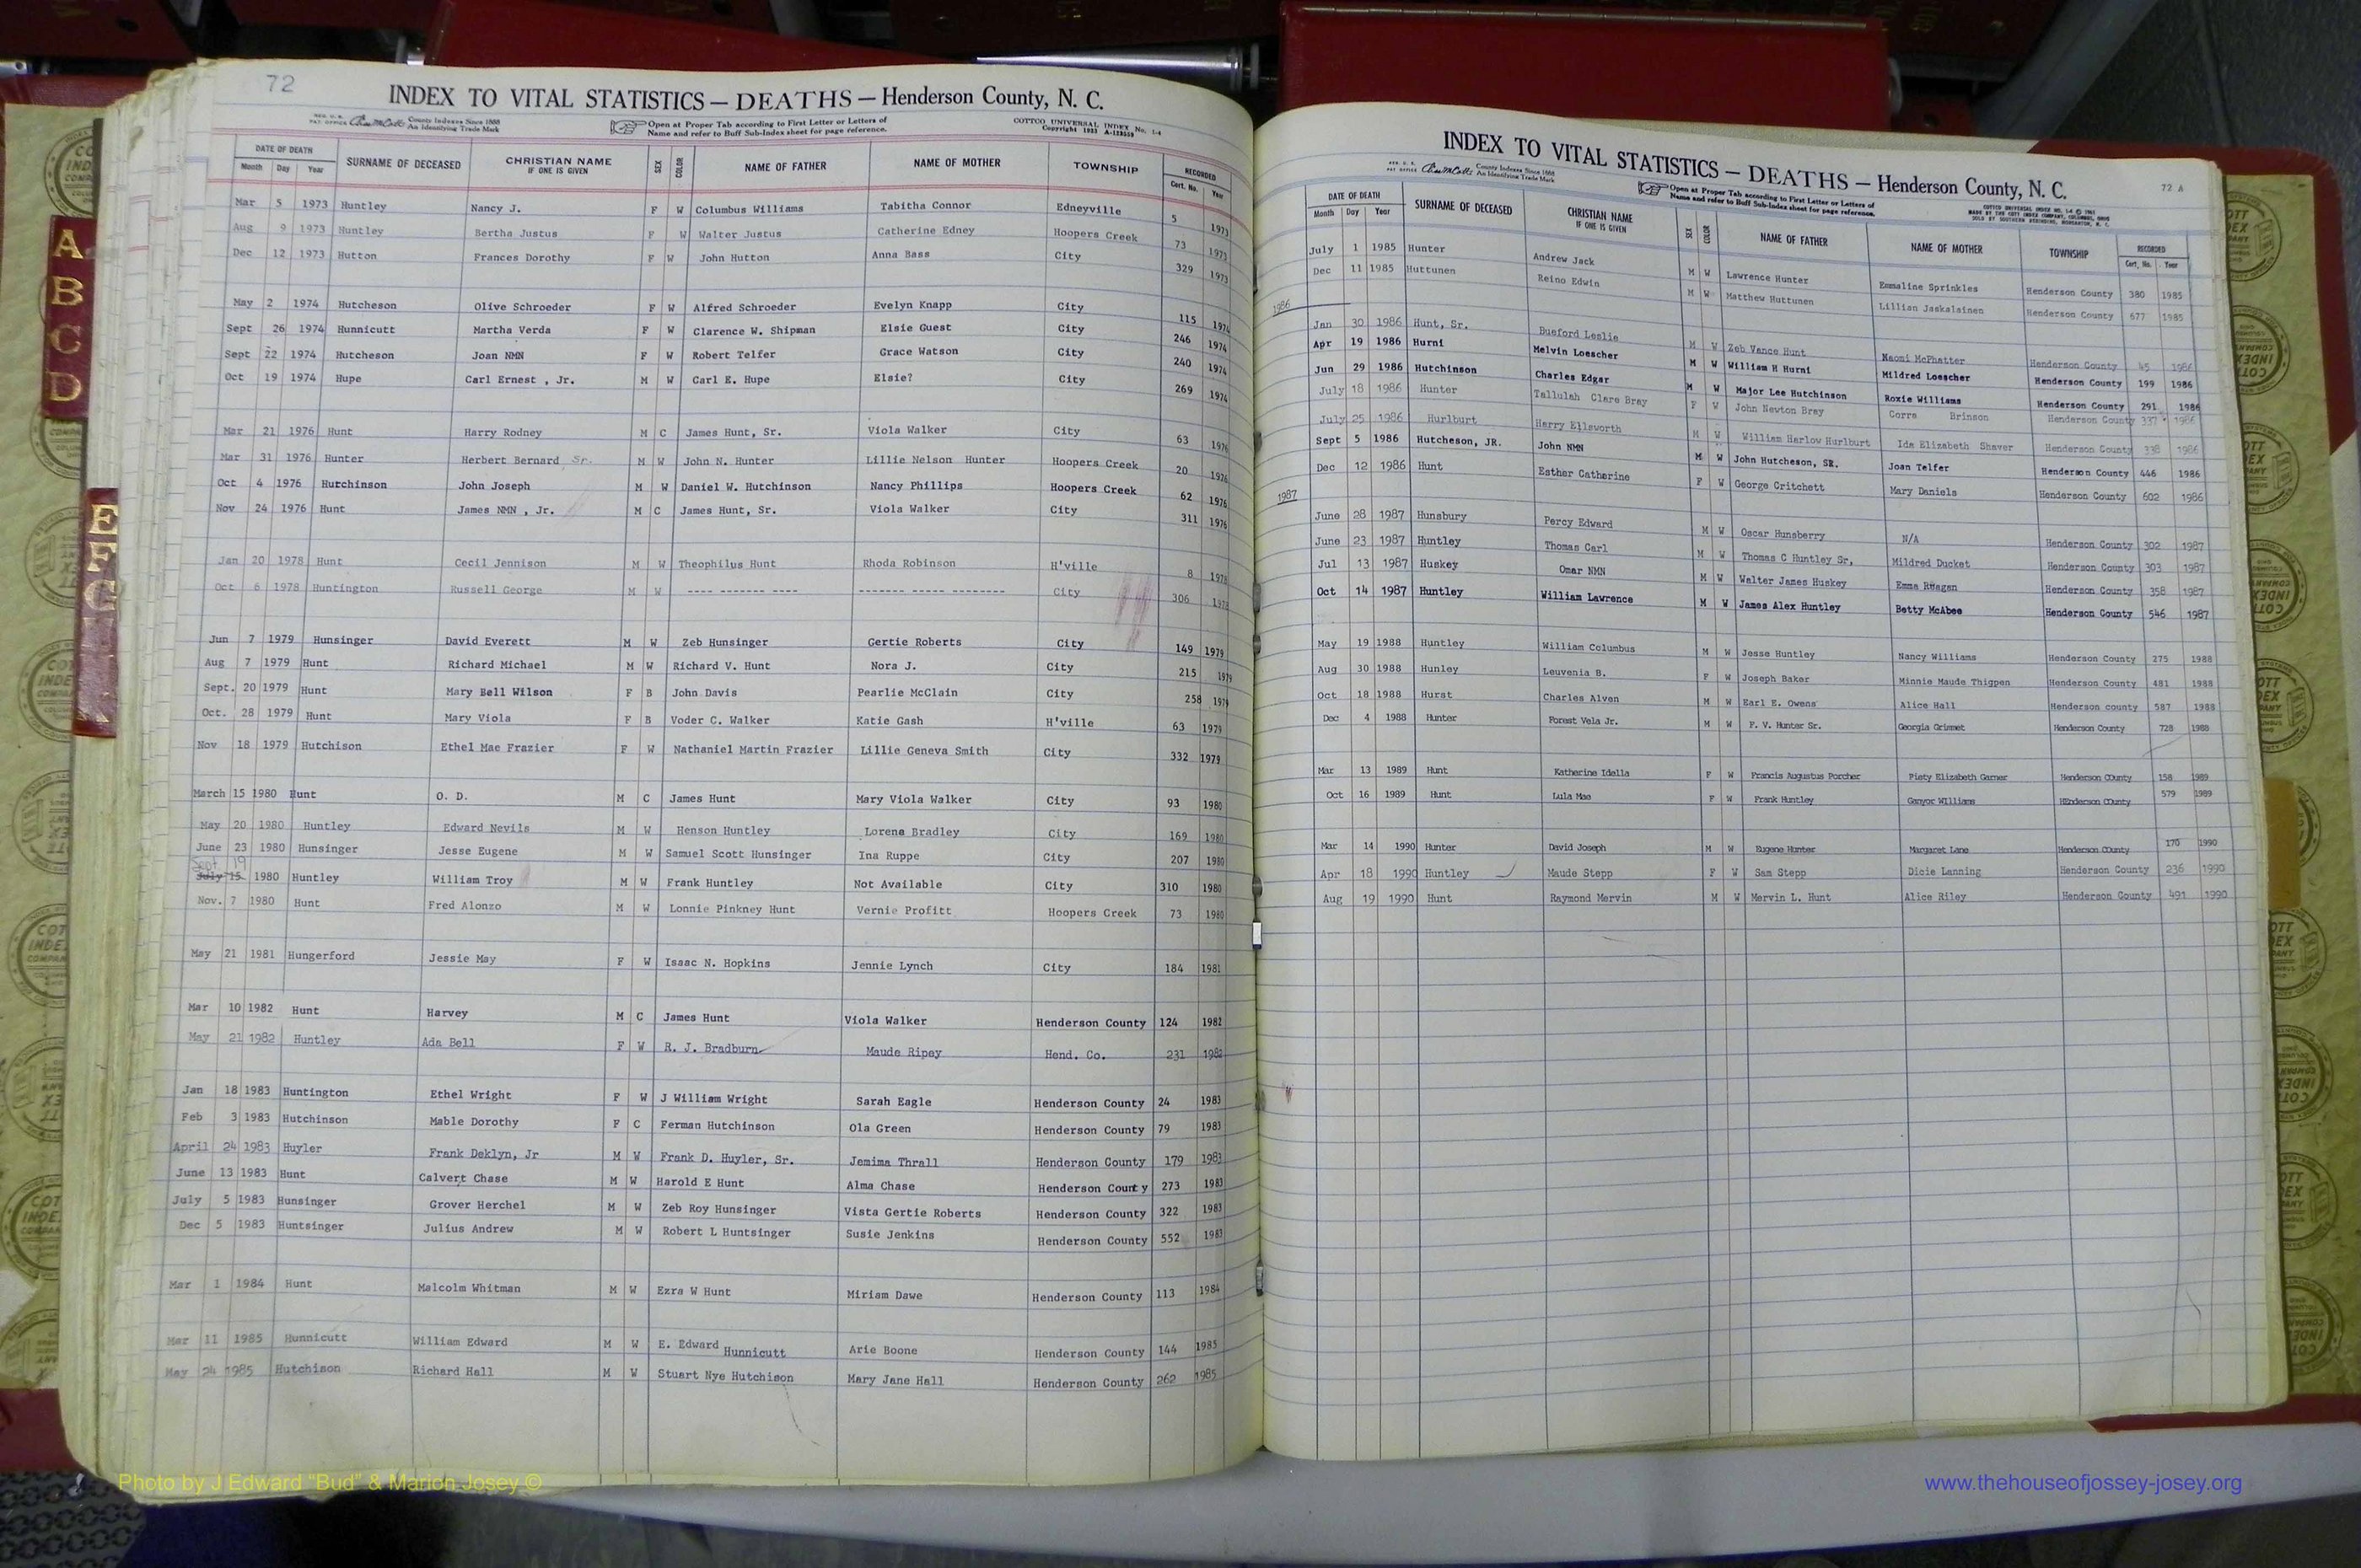 72
INDEX TO VITAL STATISTICS — DEATHS — Henderson County, N. C.
County Indexes Since 1888
An Identifying Trade Mark
Open at Proper Tab according to First Letter or Letters of
Name and refer to Buff Sub-Index sheet for page reference.
COTTCO UNIVERSAL INDEX No. 1-4
DATE OF DEATH SURNAME OF DECEASED CHRISTIAN NAME IF ONE IS GIVEN SEX COLOR NAME OF FATHER NAME OF MOTHER TOWNSHIP RECORDED
Month Day Year Cert. No. Year
Mar 5 1973 Huntley Nancy J. F W Columbus Williams Tabitha Connor Edneyville 5 1973
Aug 9 1973 Huntley Bertha Justus F W Walter Justus Catherine Edney Hoopers Creek 73 1973
Dec 12 1973 Hutton Frances Dorothy F W John Hutton Anna Bass City 329 1973
May 2 1974 Hutcheson Olive Schroeder F W Alfred Schroeder Evelyn Knapp City 115 1974
Sept 26 1974 Hunnicutt Martha Verda F W Clarence W. Shipman Elsie Guest City 246 1974
Sept 22 1974 Hutcheson Joan NMN F W Robert Telfer Grace Watson City 240 1974
Oct 19 1974 Hupe Carl Ernest , Jr. M W Carl E. Hupe Elsie? City 269 1974
Mar 21 1976 Hunt Harry Rodney M C James Hunt, Sr. Viola Walker City 63 1976
Mar 31 1976 Hunter Herbert Bernard Sr. M W John N. Hunter Lillie Nelson Hunter Hoopers Creek 20 1976
Oct 4 1976 Hutchinson John Joseph M W Daniel W. Hutchinson Nancy Phillips Hoopers Creek 62 1976
Nov 24 1976 Hunt James NMN , Jr. M C James Hunt, Sr. Viola Walker City 311 1976
Jan 20 1978 Hunt Cecil Jennison M W Theophilus Hunt Rhoda Robinson H'ville 8 1978
Oct 6 1978 Huntington Russell George M W ---- ------- ---- ------- ----- -------- City 306 1978
Jun 7 1979 Hunsinger David Everett M W Zeb Hunsinger Gertie Roberts City 149 1979
Aug 7 1979 Hunt Richard Michael M W Richard V. Hunt Nora J. City 215 1979
Sept. 20 1979 Hunt Mary Bell Wilson F B John Davis Pearlie McClain City 258 1979
Oct. 28 1979 Hunt Mary Viola F B Voder C. Walker Katie Gash H'ville 63 1979
Nov 18 1979 Hutchison Ethel Mae Frazier F W Nathaniel Martin Frazier Lillie Geneva Smith City 332 1979
March 15 1980 Hunt O. D. M C James Hunt Mary Viola Walker City 93 1980
May 20 1980 Huntley Edward Nevils M W Henson Huntley Lorena Bradley City 169 1980
June 23 1980 Hunsinger Jesse Eugene M W Samuel Scott Hunsinger Ina Ruppe City 207 1980
Sept 19
July 15 1980 Huntley William Troy M W Frank Huntley Not Available City 310 1980
Nov. 7 1980 Hunt Fred Alonzo M W Lonnie Pinkney Hunt Vernie Profitt Hoopers Creek 73 1980
May 21 1981 Hungerford Jessie May F W Isaac N. Hopkins Jennie Lynch City 184 1981
Mar 10 1982 Hunt Harvey M C James Hunt Viola Walker Henderson County 124 1982
May 21 1982 Huntley Ada Bell F W R. J. Bradburn Maude Ripey Hend. Co. 231 1982
Jan 18 1983 Huntington Ethel Wright F W J William Wright Sarah Eagle Henderson County 24 1983
Feb 3 1983 Hutchinson Mable Dorothy F C Ferman Hutchinson Ola Green Henderson County 79 1983
April 24 1983 Huyler Frank Deklyn, Jr M W Frank D. Huyler, Sr. Jemima Thrall Henderson County 179 1983
June 13 1983 Hunt Calvert Chase M W Harold E Hunt Alma Chase Henderson County 273 1983
July 5 1983 Hunsinger Grover Herchel M W Zeb Roy Hunsinger Vista Gertie Roberts Henderson County 322 1983
Dec 5 1983 Huntsinger Julius Andrew M W Robert L Huntsinger Susie Jenkins Henderson County 552 1983
Mar 1 1984 Hunt Malcolm Whitman M W Ezra W Hunt Miriam Dawe Henderson County 113 1984
Mar 11 1985 Hunnicutt William Edward M W E. Edward Hunnicutt Arie Boone Henderson County 144 1985
May 24 1985 Hutchison Richard Hall M W Stuart Nye Hutchison Mary Jane Hall Henderson County 262 1985
INDEX TO VITAL STATISTICS — DEATHS — Henderson County, N. C.
72 A
County Indexes Since 1888
An Identifying Trade Mark
Open at Proper Tab according to First Letter or Letters of
Name and refer to Buff Sub-Index sheet for page reference.
DATE OF DEATH SURNAME OF DECEASED CHRISTIAN NAME IF ONE IS GIVEN SEX COLOR NAME OF FATHER NAME OF MOTHER TOWNSHIP RECORDED
Month Day Year Cert. No. Year
July 1 1985 Hunter Andrew Jack M W Lawrence Hunter Emmaline Sprinkles Henderson County 380 1985
Dec 11 1985 Huttunen Reino Edwin M W Matthew Huttunen Lillian Jaskalainen Henderson County 677 1985
1986
Jan 30 1986 Hunt, Sr. Bueford Leslie M W Zeb Vance Hunt Naomi McPhatter Henderson County 45 1986
Apr 19 1986 Hurni Melvin Loescher M W William H Hurni Mildred Loescher Henderson County 199 1986
Jun 29 1986 Hutchinson Charles Edgar M W Major Lee Hutchinson Roxie Williams Henderson County 291 1986
July 18 1986 Hunter Tallulah Clare Bray F W John Newton Bray Corra Brinson Henderson County 337 1986
July 25 1986 Hurlburt Harry Ellsworth M W William Harlow Hurlburt Ida Elizabeth Shaver Henderson County 338 1986
Sept 5 1986 Hutcheson, JR. John NMN M W John Hutcheson, SR. Joan Telfer Henderson County 446 1986
Dec 12 1986 Hunt Esther Catherine F W George Critchett Mary Daniels Henderson County 602 1986
1987
June 28 1987 Hunsbury Percy Edward M W Oscar Hunsberry N/A Henderson County 302 1987
June 23 1987 Huntley Thomas Carl M W Thomas C Huntley Sr, Mildred Ducket Henderson County 303 1987
Jul 13 1987 Huskey Omar NMN M W Walter James Huskey Emma Reagan Henderson County 358 1987
Oct 14 1987 Huntley William Lawrence M W James Alex Huntley Betty McAbee Henderson County 546 1987
May 19 1988 Huntley William Columbus M W Jesse Huntley Nancy Williams Henderson County 275 1988
Aug 30 1988 Hunley Leuvenia B. F W Joseph Baker Minnie Maude Thigpen Henderson County 481 1988
Oct 18 1988 Hurst Charles Alven M W Earl E. Owens Alice Hall Henderson county 587 1988
Dec 4 1988 Hunter Forest Vela Jr. M W F. V. Hunter Sr. Georgia Grimmet Henderson County 728 1988
Mar 13 1989 Hunt Katherine Idella F W Francis Augustus Porcher Piety Elizabeth Garner Henderson COunty 158 1989
Oct 16 1989 Hunt Lula Mae F W Frank Huntley Ganyoc Williams HEnderson COunty 579 1989
Mar 14 1990 Hunter David Joseph M W Eugene Hunter Margaret Lane Henderson COunty 170 1990
Apr 18 1990 Huntley Maude Stepp F W Sam Stepp Dicie Lanning Henderson County 236 1990
Aug 19 1990 Hunt Raymond Mervin M W Mervin L. Hunt Alice Riley Henderson County 491 1990
A
B
C
D
E
F
G
Photo by J Edward "Bud" & Marion Josey ©
www.thehouseofjossey-josey.org